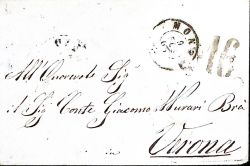 MONS
16
All' Onorevole Sig
A Sig Conte Giacomo Murari Brà
Verona